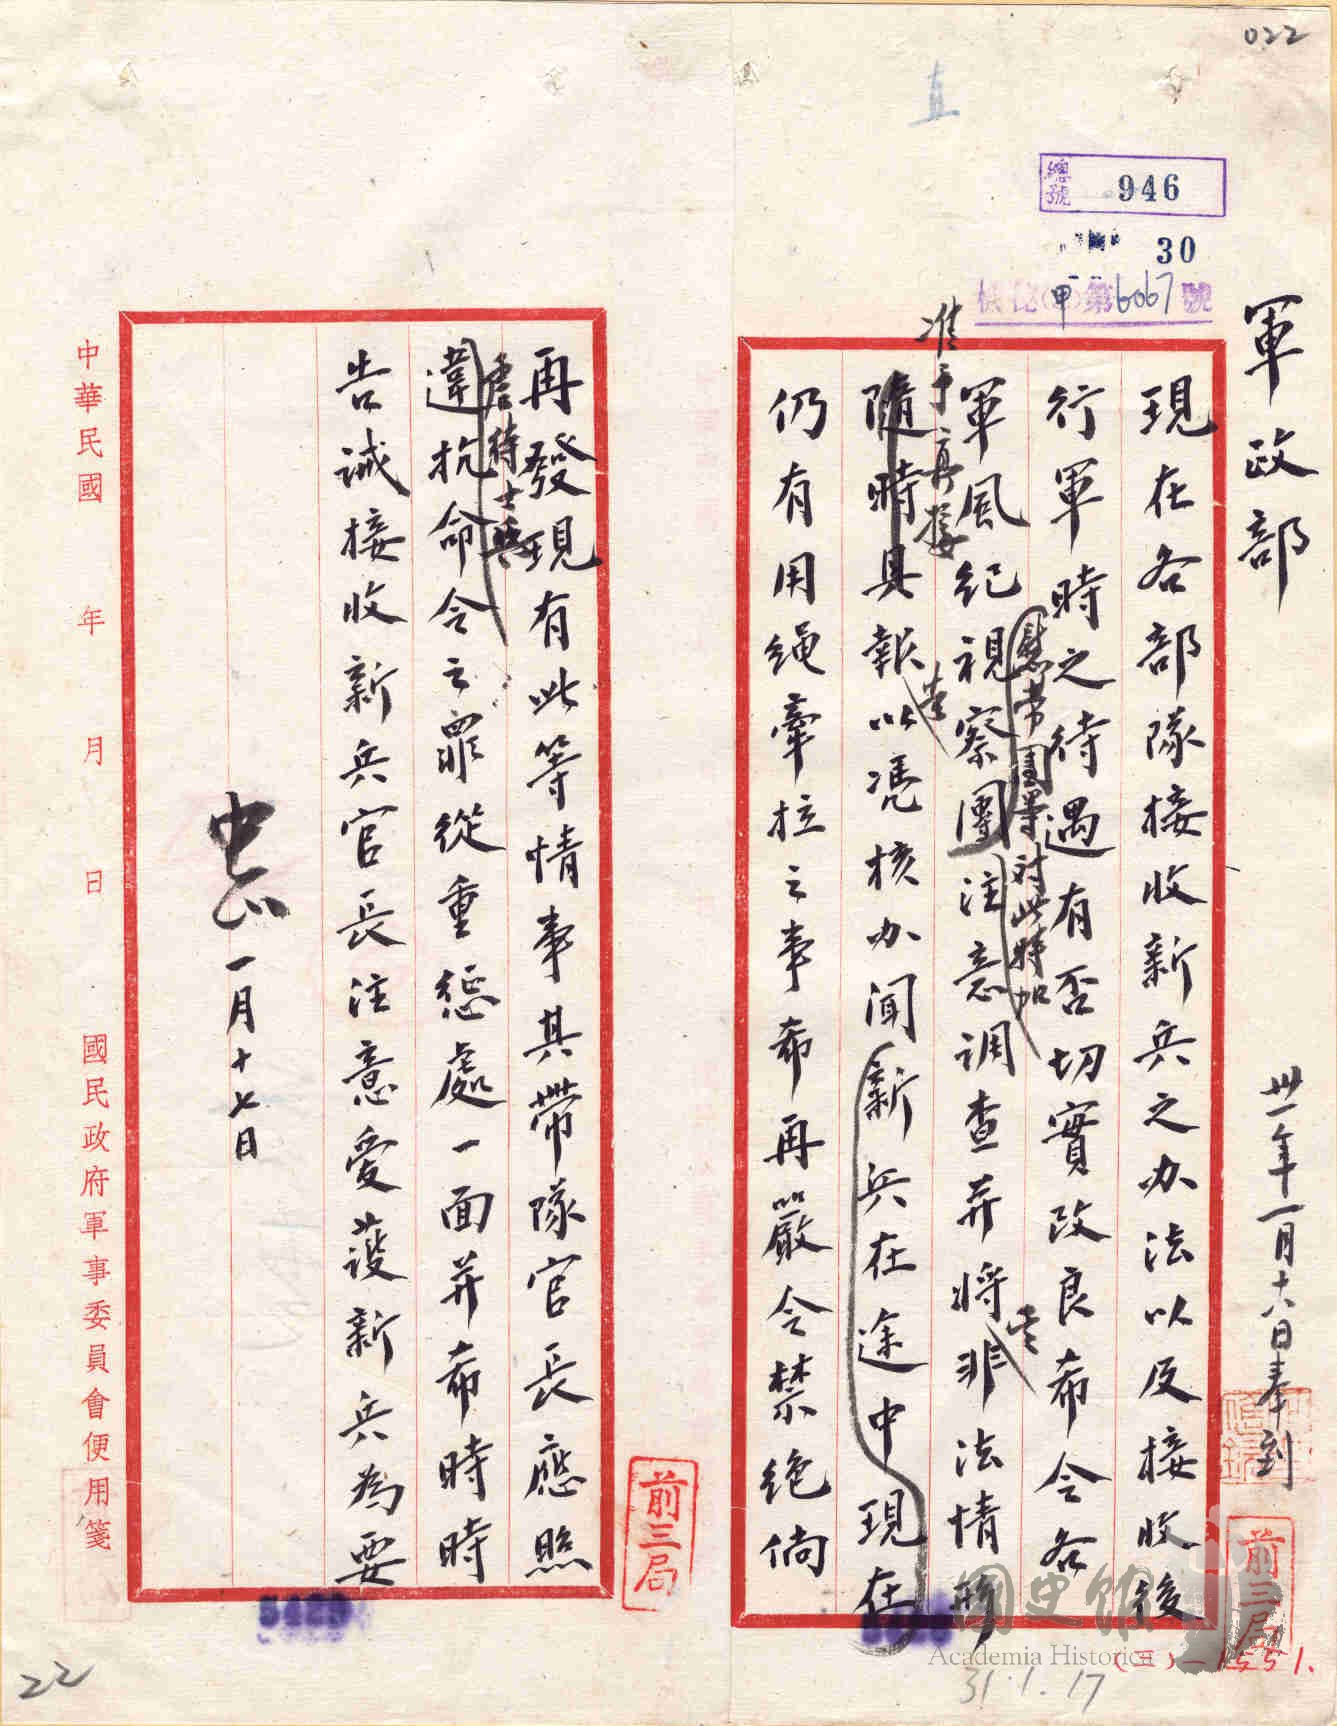 022
直
總號 946
30
機秘(甲)第6067號
軍政部
卅一年一月十八日奉到
現在各部隊接收新兵之办法以及接收後
行軍時之待遇有否切實改良希令各
慰勞團等對此特加
軍風紀視察團注意調查并將非法情形
准予直接
隨時具報以憑核办闻新兵在途中現在
仍有用绳牽拉之事希再嚴令禁绝倘
前三局
前三局
再發現有此等情事其帶隊官長應照
虐待士兵
違抗命令之罪從重懲處一面并希時時
告诫接收新兵官長注意愛護新兵為要
中正
一月十七日
中華民國 年 月 日
國民政府軍事委員會便用箋
5429
國史館
Academia Historica
(三)一1551.
31.1.17
22